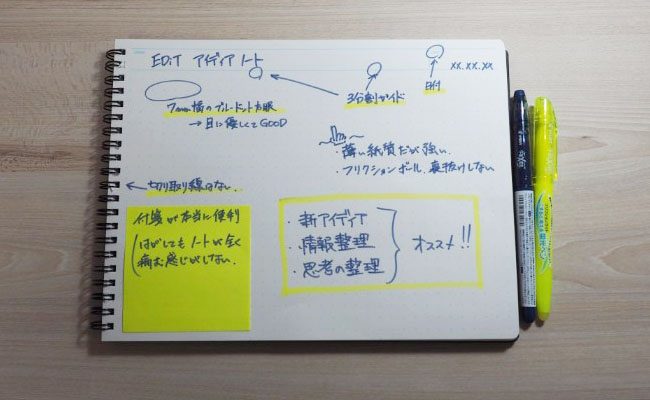 EDiT アイディアノート
xx.xx.xx
日付
3分割ガイド
7mm横のブルードット方眼
→目に優しくてGOOD
・薄い紙質だが強い.
・フリクションボール 裏抜けしない
切り取り線はない.
付箋が本当に便利
はがしてもノートが全く
痛む感じがしない.
・新アイディア
・情報整理
・思考の整理
オススメ!!